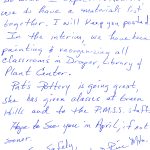 we do have a materials list
together. I will keep you posted
In the interim, we have been
painting & reorganizing all
classrooms in Draper, Library &
Plant Center.
Pat's Pottery is going great,
she has given classes at Green
Hills and to the staff.
Hope to see you in April, if not
sooner.